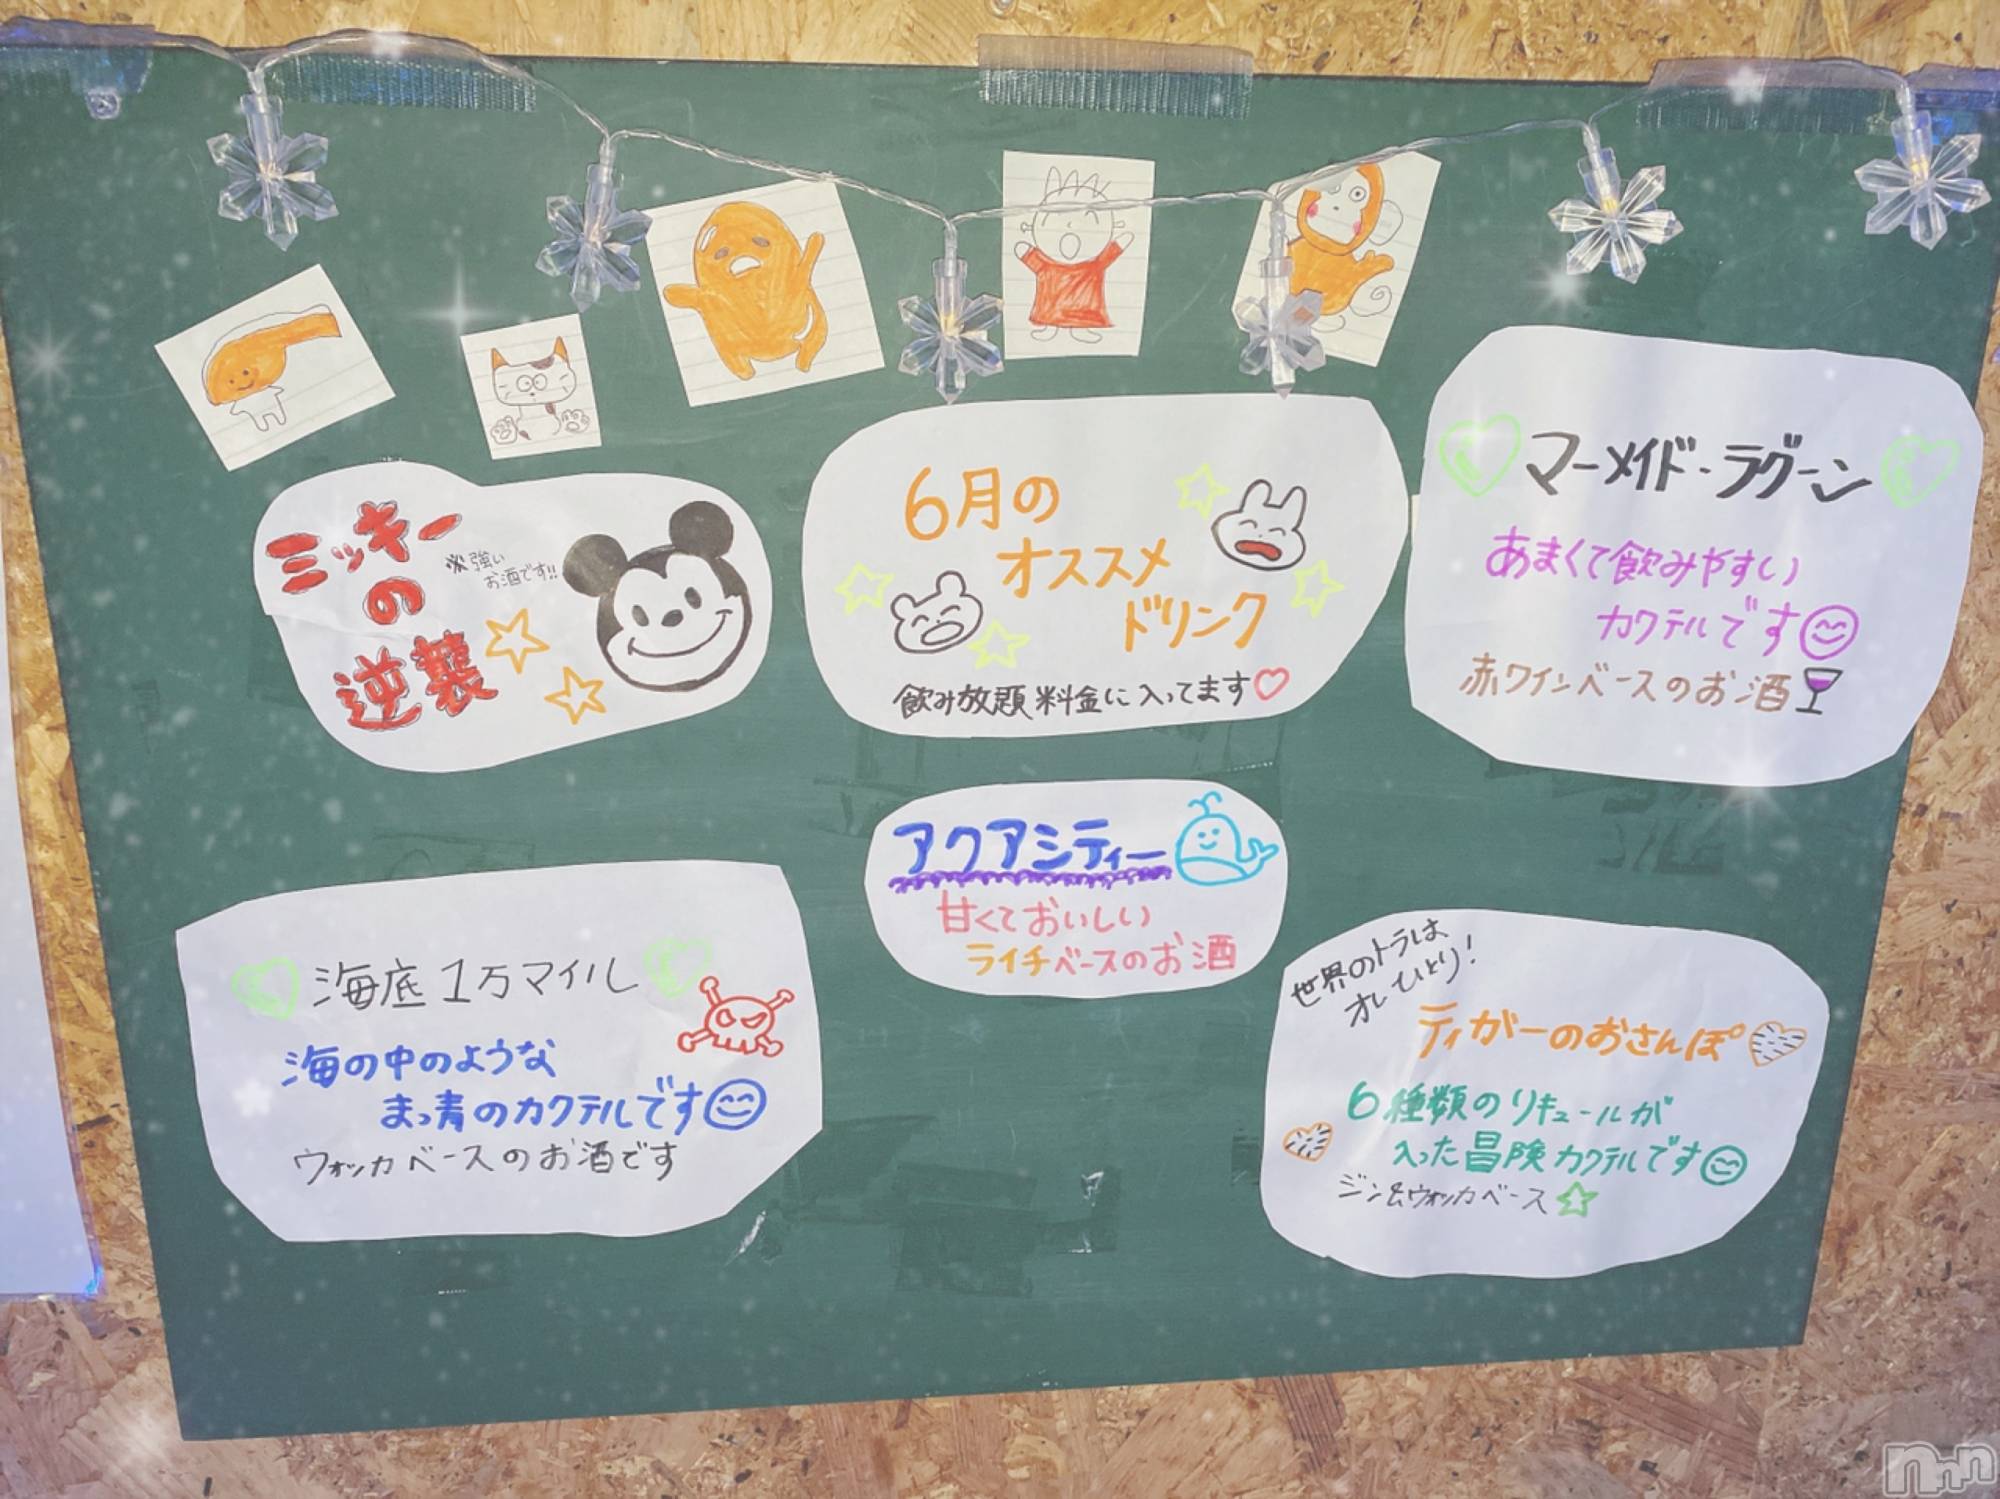 ミッキー
の
逆襲
※強い
お酒です!!
6月の
オススメ
ドリンク
飲み放題料金に入ってます♡
マーメイド・ラグーン
あまくて飲みやすい
カクテルです
赤ワインベースのお酒
アクアシティー
甘くておいしい
ライチベースのお酒
海底1万マイル
海の中のような
まっ青のカクテルです
ウォッカベースのお酒です
世界のトラは
オレひとり!
ティガーのおさんぽ
6種類のリキュールが
入った冒険カクテルです
ジン&ウォッカベース☆
nnn